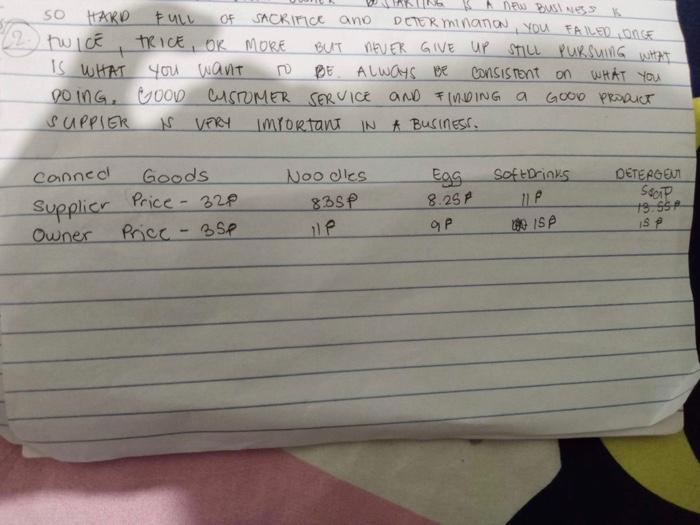 OWNER STARTING IS A NEW BUSINESS IS
SO HARD FULL OF SACRIFICE and DETERMINATION, YOU FAILED, ONCE
2. TWICE, TRICE, OR MORE BUT NEVER GIVE UP STILL PURSUING WHAT
IS WHAT YOU WANT TO BE. ALWAYS BE CONSISTENT ON WHAT YOU
DOING. GOOD CUSTOMER SERVICE AND FINDING a GOOD PRODUCT
SUPPIER IS VERY IMPORTANT IN A BUSINESS.
Canned Goods Noodles Egg SoftDrinks DETERGENT
Soap
Supplier Price - 32₱ 835₱ 8.25₱ 11₱ 13.55₱
Owner Price - 35₱ 11₱ 9₱ 15₱ 15₱